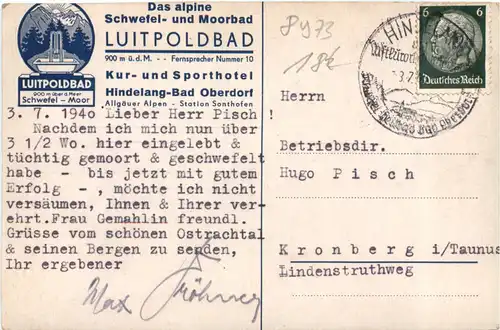 Das alpine
Schwefel- und Moorbad
LUITPOLDBAD
900 m ü.d.M. -- Fernsprecher Nummer 10
Kur- und Sporthotel
Hindelang-Bad Oberdorf
Allgäuer Alpen - Station Sonthofen
LUITPOLDBAD
900 m über d. Meer
Schwefel - Moor
3. 7. 1940 Lieber Herr Pisch !
Nachdem ich mich nun über
3 1/2 Wo. hier eingelebt &
tüchtig gemoort & geschwefelt
habe - bis jetzt mit gutem
Erfolg - , möchte ich nicht
versäumen, Ihnen & Ihrer ver-
ehrt.Frau Gemahlin freundl.
Grüsse vom schönen Ostrachtal
& seinen Bergen zu senden,
Ihr ergebener
Max
8973
18€
6 6
Deutsches Reich
Herrn
Betriebsdir.
Hugo Pisch
Kronberg i/Taunus
Lindenstruthweg